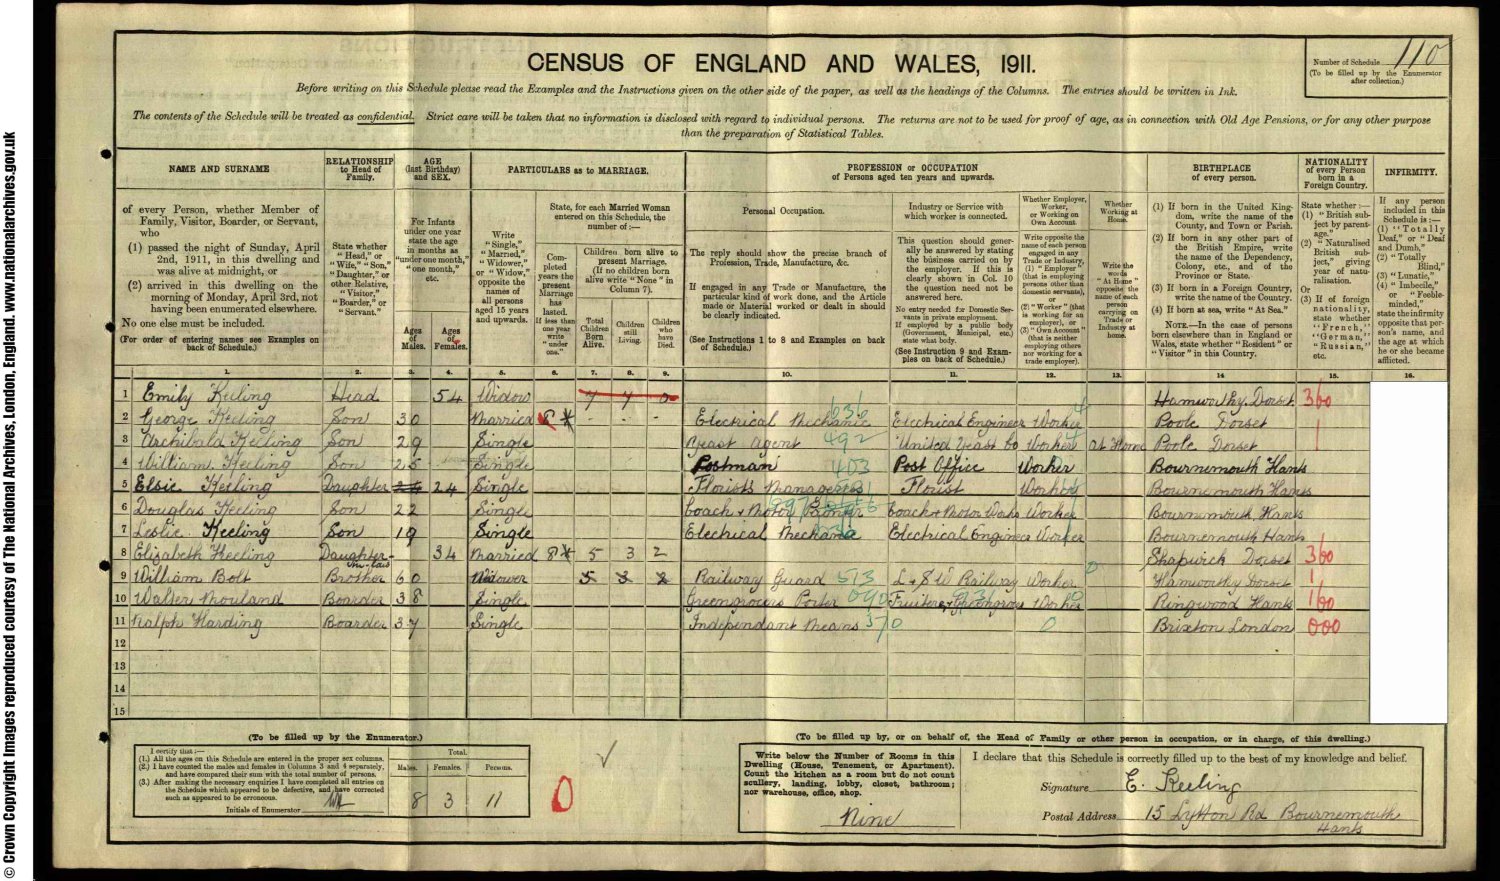 © Crown Copyright Images reproduced courtesy of The National Archives, London, England. www.nationalarchives.gov.uk
CENSUS OF ENGLAND AND WALES, 1911.
Number of Schedule 110
(To be filled up by the Enumerator after collection.)
Before writing on this Schedule please read the Examples and the Instructions given on the other side of the paper, as well as the headings of the Columns. The entries should be written in Ink.
The contents of the Schedule will be treated as confidential. Strict care will be taken that no information is disclosed with regard to individual persons. The returns are not to be used for proof of age, as in connection with Old Age Pensions, or for any other purpose
than the preparation of Statistical Tables.
NAME AND SURNAME
RELATIONSHIP to Head of Family.
AGE (last Birthday) and SEX.
PARTICULARS as to MARRIAGE.
PROFESSION or OCCUPATION of Persons aged ten years and upwards.
BIRTHPLACE of every person.
NATIONALITY of every Person born in a Foreign Country.
INFIRMITY.
of every Person, whether Member of Family, Visitor, Boarder, or Servant, who
(1) passed the night of Sunday, April 2nd, 1911, in this dwelling and was alive at midnight, or
(2) arrived in this dwelling on the morning of Monday, April 3rd, not having been enumerated elsewhere.
No one else must be included.
(For order of entering names see Examples on back of Schedule.)
State whether "Head," or "Wife," "Son," "Daughter," or other Relative, "Visitor," "Boarder," or "Servant."
For Infants under one year state the age in months as "under one month," "one month," etc.
Ages of Males.
Ages of Females.
Write "Single," "Married," "Widower," or "Widow," opposite the names of all persons aged 15 years and upwards.
State, for each Married Woman entered on this Schedule, the number of:—
Completed years the present Marriage has lasted. If less than one year write "under one."
Children born alive to present Marriage. (If no children born alive write "None" in Column 7).
Total Children Born Alive.
Children still Living.
Children who have Died.
Personal Occupation.
The reply should show the precise branch of Profession, Trade, Manufacture, &c.
If engaged in any Trade or Manufacture, the particular kind of work done, and the Article made or Material worked or dealt in should be clearly indicated.
(See Instructions 1 to 8 and Examples on back of Schedule.)
Industry or Service with which worker is connected.
This question should generally be answered by stating the business carried on by the employer. If this is clearly shown in Col. 10 the question need not be answered here.
No entry needed for Domestic Servants in private employment. If employed by a public body (Government, Municipal, etc.) state what body.
(See Instruction 9 and Examples on back of Schedule.)
Whether Employer, Worker, or Working on Own Account.
Write opposite the name of each person engaged in any Trade or Industry, (1) "Employer" (that is employing persons other than domestic servants), or (2) "Worker" (that is working for an employer), or (3) "Own Account" (that is neither employing others nor working for a trade employer).
Whether Working at Home.
Write the words "At Home" opposite the name of each person carrying on Trade or Industry at home.
(1) If born in the United Kingdom, write the name of the County, and Town or Parish.
(2) If born in any other part of the British Empire, write the name of the Dependency, Colony, etc., and of the Province or State.
(3) If born in a Foreign Country, write the name of the Country.
(4) If born at sea, write "At Sea."
NOTE.—In the case of persons born elsewhere than in England or Wales, state whether "Resident" or "Visitor" in this Country.
State whether :— (1) "British subject by parentage." (2) "Naturalised British subject," giving year of naturalisation. Or (3) If of foreign nationality, state whether "French," "German," "Russian," etc.
If any person included in this Schedule is :— (1) "Totally Deaf," or "Deaf and Dumb," (2) "Totally Blind," (3) "Lunatic," (4) "Imbecile," or "Feeble-minded," state the infirmity opposite that person's name, and the age at which he or she became afflicted.
1. 2. 3. 4. 5. 6. 7. 8. 9. 10. 11. 12. 13. 14 15. 16.
1 Emily Keeling Head 54 Widow 7 7 0 Hamworthy Dorset 360
2 George Keeling Son 30 Married 8 * - - - Electrical Mechanic 636 Electrical Engineer Worker Poole Dorset
3 Archibald Keeling Son 29 Single Yeast Agent 492 United Yeast Co Worker At Home Poole Dorset
4 William Keeling Son 25 Single Postman 403 Post Office Worker Bournemouth Hants
5 Elsie Keeling Daughter 24 24 Single Florists Manageress Florist Worker Bournemouth Hants
6 Douglas Keeling Son 22 Single Coach & Motor Painter Coach & Motor Works Worker Bournemouth Hants
7 Leslie Keeling Son 19 Single Electrical Mechanic Electrical Engineer Worker Bournemouth Hants
8 Elizabeth Keeling Daughter-in-law 34 Married 8 * 5 3 2 Shapwick Dorset 360
9 William Bolt Brother 60 Widower 5 3 2 Railway Guard 513 L & S W Railway Worker Hamworthy Dorset
10 Walter Mouland Boarder 38 Single Greengrocers Porter Fruiterer & Greengrocer Worker Ringwood Hants 160
11 Ralph Harding Boarder 37 Single Independant Means 370 0 Brixton London 000
12
13
14
15
(To be filled up by the Enumerator.)
I certify that:—
(1.) All the ages on this Schedule are entered in the proper sex columns.
(2.) I have counted the males and females in Columns 3 and 4 separately, and have compared their sum with the total number of persons.
(3.) After making the necessary enquiries I have completed all entries on the Schedule which appeared to be defective, and have corrected such as appeared to be erroneous.
Initials of Enumerator
Total.
Males. Females. Persons.
8 3 11
0
(To be filled up by, or on behalf of, the Head of Family or other person in occupation, or in charge, of this dwelling.)
Write below the Number of Rooms in this Dwelling (House, Tenement, or Apartment). Count the kitchen as a room but do not count scullery, landing, lobby, closet, bathroom; nor warehouse, office, shop.
Nine
I declare that this Schedule is correctly filled up to the best of my knowledge and belief.
Signature E. Keeling
Postal Address 15 Lytton Rd Bournemouth
Hants